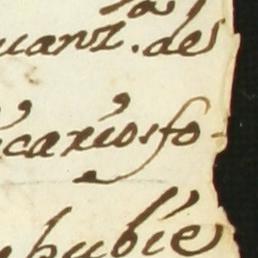 uanz.ª de
icario, fo-
hubie